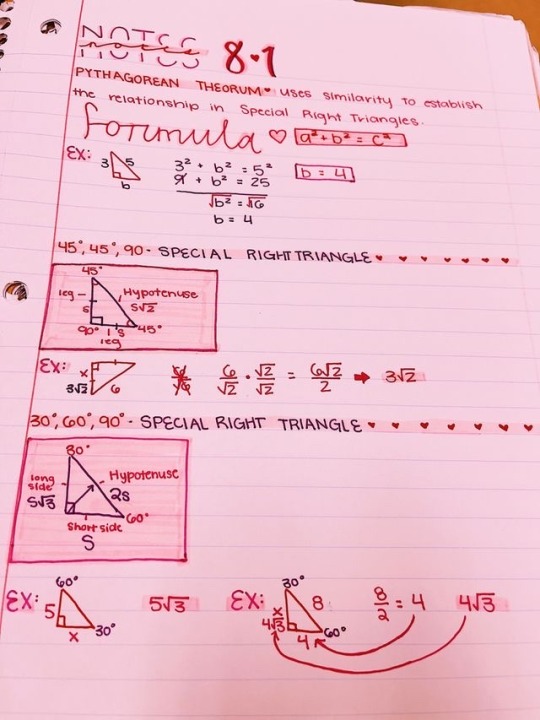 NOTES
notes 8.1
NOTES
PYTHAGOREAN THEORUM♥ uses similarity to establish
the relationship in Special Right Triangles.
formula ♡ a² + b² = c²
EX: 3 5 b
3² + b² = 5²
9 + b² = 25
√b² = √16
b = 4
b = 4
45°, 45°, 90 - SPECIAL RIGHT TRIANGLE ♥ ♥ ♥ ♥ ♥ ♥ ♥
45°
leg Hypotenuse
s s√2
90° s 45°
leg
EX: x 3√2 6
6/√2 · √2/√2 = 6√2/2 → 3√2
30°, 60°, 90° - SPECIAL RIGHT TRIANGLE ♥ ♥ ♥ ♥ ♥ ♥ ♥
30°
long side Hypotenuse
s√3 2s
60°
Short side
S
EX: 60° 5 x 30° 5√3
EX: 30° x 8 4√3 4 60° 8/2 = 4 4√3